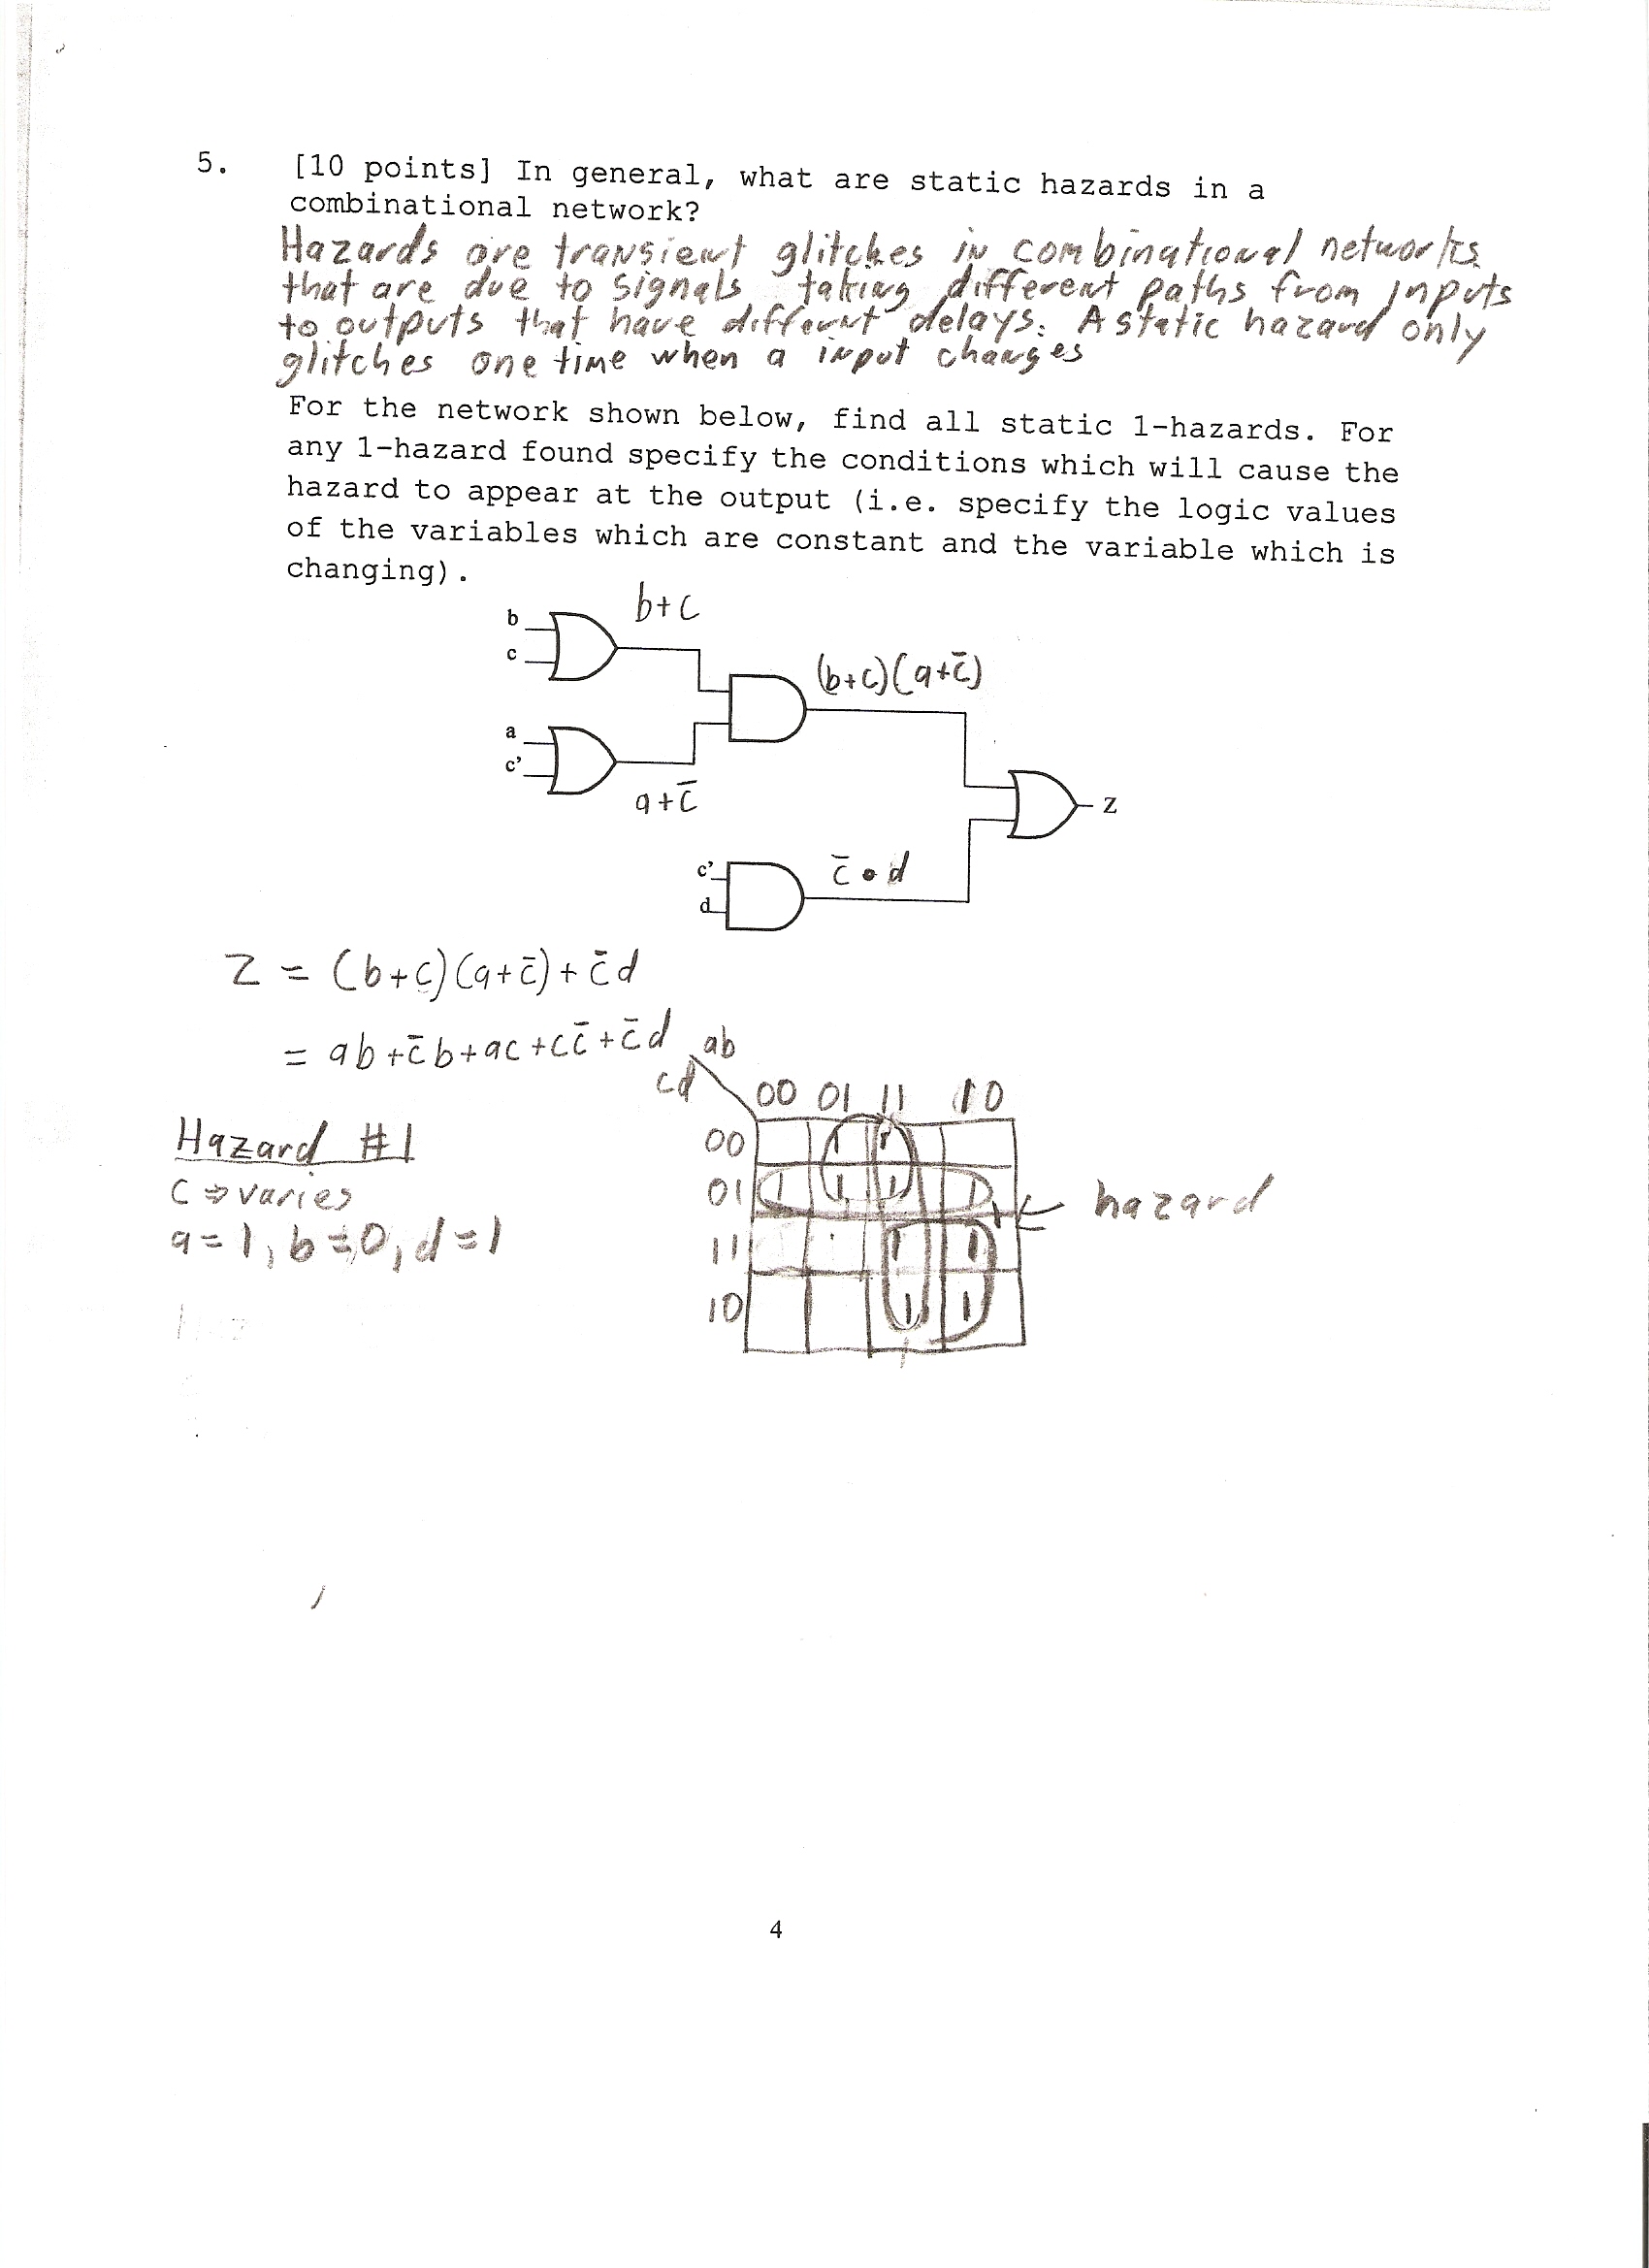 5. [10 points] In general, what are static hazards in a
combinational network?
Hazards are transient glitches in combinational networks
that are due to signals taking different paths from inputs
to outputs that have different delays. A static hazard only
glitches one time when a input changes
For the network shown below, find all static 1-hazards. For
any 1-hazard found specify the conditions which will cause the
hazard to appear at the output (i.e. specify the logic values
of the variables which are constant and the variable which is
changing).
b+c
b
c
(b+c)(a+c̄)
a
c'
a+c̄
Z
c'
d
c̄•d
Z = (b+c)(a+c̄)+c̄d
= ab+c̄b+ac+cc̄+c̄d
ab
cd
00 01 11 10
00 1 1
01 1 1 1 1
11 1 1
10 1 1
hazard
Hazard #1
C ⇒ varies
a=1, b=0, d=1
4